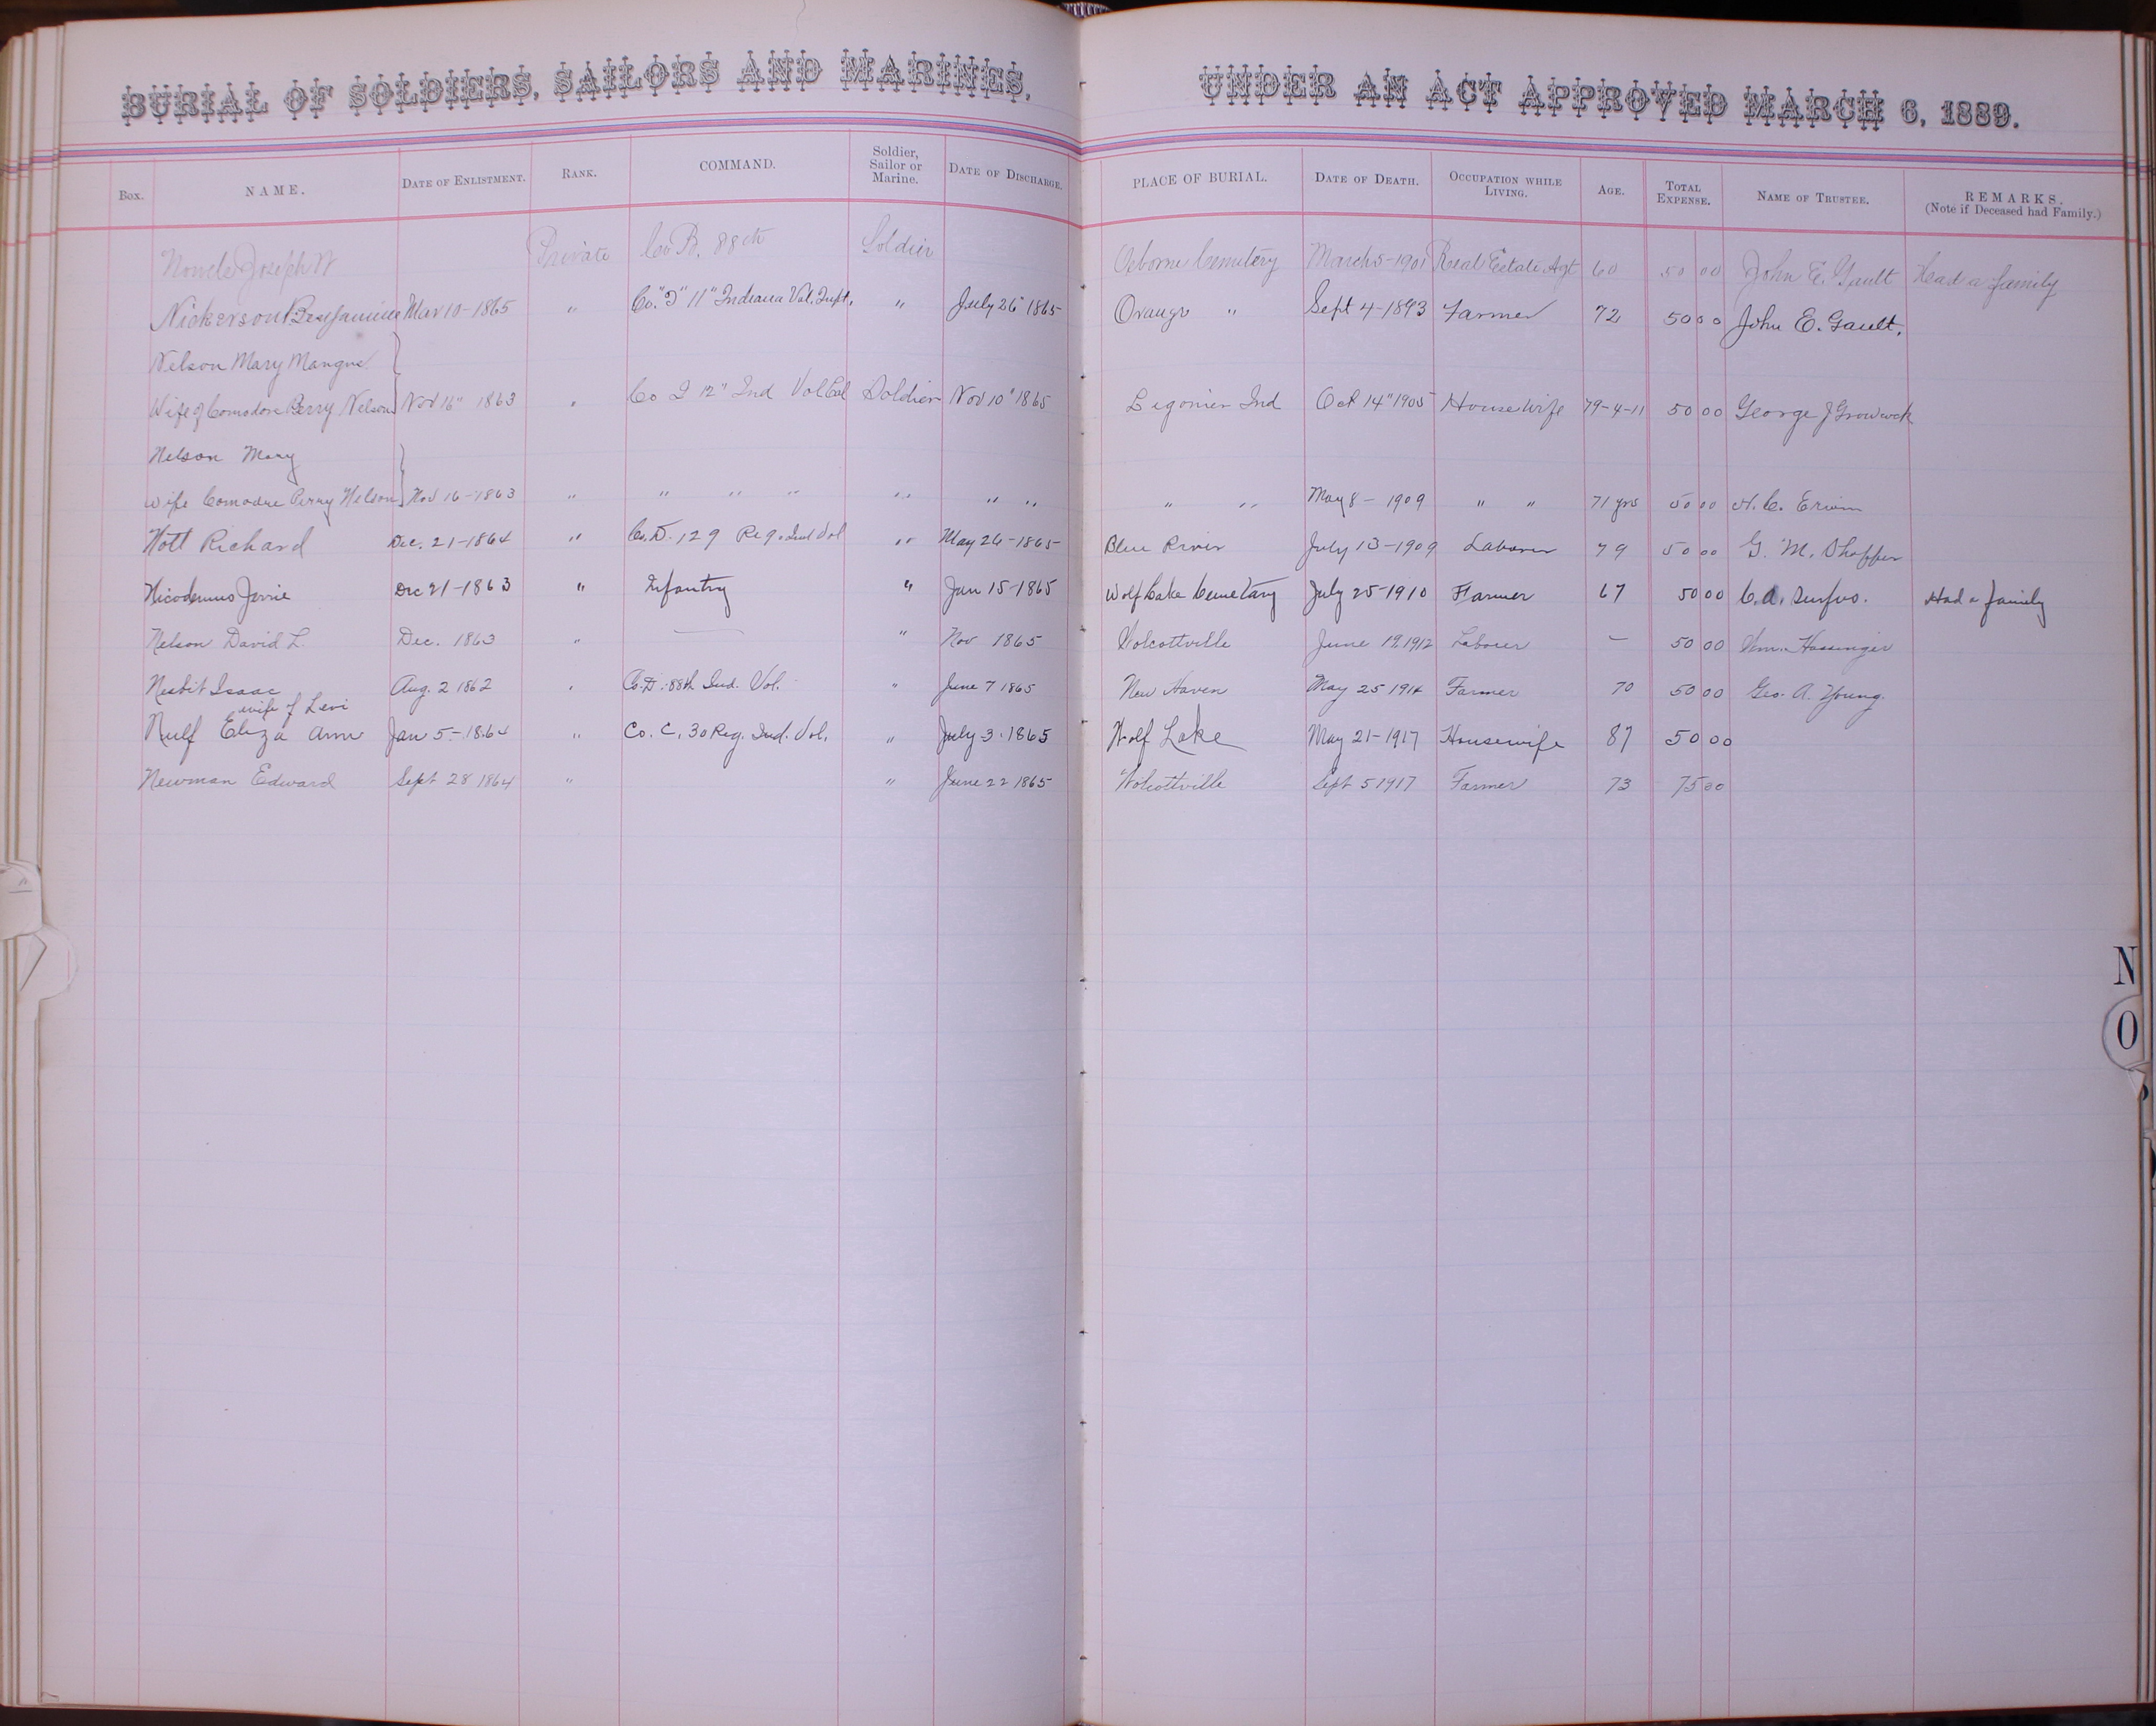 BURIAL OF SOLDIERS, SAILORS AND MARINES, UNDER AN ACT APPROVED MARCH 6, 1889.
Box. NAME. DATE OF ENLISTMENT. RANK. COMMAND. Soldier, Sailor or Marine. DATE OF DISCHARGE. PLACE OF BURIAL. DATE OF DEATH. OCCUPATION WHILE LIVING. AGE. TOTAL EXPENSE. NAME OF TRUSTEE. REMARKS. (Note if Deceased had Family.)
Joseph W Private Co B. 88th Soldier Osborne Cemetery March 5-1901 Real Estate Agt 60 50 00 John E. Gault Had a family
Nickerson Benjamin Mar 10-1865 " Co. "I" 11" Indiana Vol. Inft. " July 26" 1865 Orange " Sept 4-1893 Farmer 72 50 00 John E. Gault.
Nelson Mary Mangus }
Wife of Comodore Perry Nelson Nov 16" 1863 " Co I 12" Ind Vol Cal Soldier Nov 10" 1865 Ligonier Ind Oct 14" 1905 Housewife 79-4-11 50 00 George J
Nelson Mary }
wife Comodore Perry Nelson Nov 16-1863 " " " " " " " " " " May 8-1909 " " 71 yrs 50 00 H. C. Erwin
Nott Richard Dec. 21-1864 " Co. D. 129 Reg. Ind Vol " May 26-1865 Blue River July 13-1909 Laborer 79 50 00 G. M. Shaffer
Nicodemus Dec 21-1863 " Infantry " Jun 15-1865 Wolf Lake Cemetary July 25-1910 Farmer 67 50 00 C. A. Had a family
Nelson David L. Dec. 1863 " — " Nov 1865 Wolcottville June 19, 1912 Laborer — 50 00 Wm. Hassinger
Nesbit Isaac Aug. 2 1862 " Co. D. 88th Ind. Vol. " June 7 1865 New Haven May 25 1914 Farmer 70 50 00 Geo. A. Young.
wife of Levi
Nulf Eliza Ann Jan 5-1864 " Co. C, 30 Reg. Ind. Vol. " July 3-1865 Wolf Lake May 21-1917 Housewife 87 50 00
Newman Edward Sept 28 1864 " " June 22 1865 Wolcottville Sept 5 1917 Farmer 73 75 00
N
O